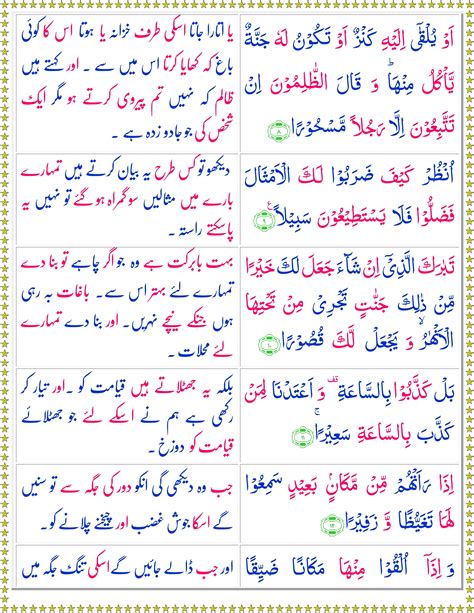 اَوْ يُلْقٰۤى اِلَيْهِ كَنْزٌ اَوْ تَكُوْنُ لَهٗ جَنَّةٌ
يَّاْكُلُ مِنْهَا ؕ وَ قَالَ الظّٰلِمُوْنَ اِنْ
تَتَّبِعُوْنَ اِلَّا رَجُلًا مَّسْحُوْرًا ﴿۸﴾
یا اتارا جاتا اسکی طرف خزانہ یا ہوتا اس کا کوئی
باغ کہ کھایا کرتا اس میں سے ۔ اور کہتے ہیں
ظالم کہ نہیں تم پیروی کرتے ہو مگر ایک
شخص کی جو جادو زدہ ہے ۔
اُنْظُرْ كَيْفَ ضَرَبُوْا لَكَ الْاَمْثَالَ
فَضَلُّوْا فَلَا يَسْتَطِيْعُوْنَ سَبِيْلًا ﴿۹﴾
دیکھو تو کس طرح یہ بیان کرتے ہیں تمہارے
بارے میں مثالیں سو گمراہ ہو گئے تو نہیں
پاسکتے راستہ ۔
تَبٰرَكَ الَّذِيْۤ اِنْ شَآءَ جَعَلَ لَكَ خَيْرًا
مِّنْ ذٰلِكَ جَنّٰتٍ تَجْرِيْ مِنْ تَحْتِهَا
الْاَنْهٰرُ ۙ وَ يَجْعَلْ لَّكَ قُصُوْرًا ﴿۱۰﴾
بہت بابرکت ہے وہ جو اگر چاہے تو بنا دے
تمہارے لئے بہتر اس سے ۔ باغات بہ رہی
ہوں جنکے نیچے نہریں۔ اور بنا دے تمہارے
لئے محلات ۔
بَلْ كَذَّبُوْا بِالسَّاعَةِ ۫ وَ اَعْتَدْنَا لِمَنْ
كَذَّبَ بِالسَّاعَةِ سَعِيْرًا ﴿۱۱﴾
بلکہ یہ جھٹلاتے ہیں قیامت کو ۔اور تیار کر
رکھی ہے ہم نے اسکے لئے جو جھٹلائے
قیامت کو دوزخ ۔
اِذَا رَاَتْهُمْ مِّنْ مَّكَانٍۭ بَعِيْدٍ سَمِعُوْا
لَهَا تَغَيُّظًا وَّ زَفِيْرًا ﴿۱۲﴾
جب وہ دیکھی گی انکو دور کی جگہ سے تو سنیں
گے اسکا جوش غضب اور چیخنے چلانے کو۔
وَ اِذَاۤ اُلْقُوْا مِنْهَا مَكَانًا ضَيِّقًا
اور جب ڈالے جائیں گے اسکی تنگ جگہ میں